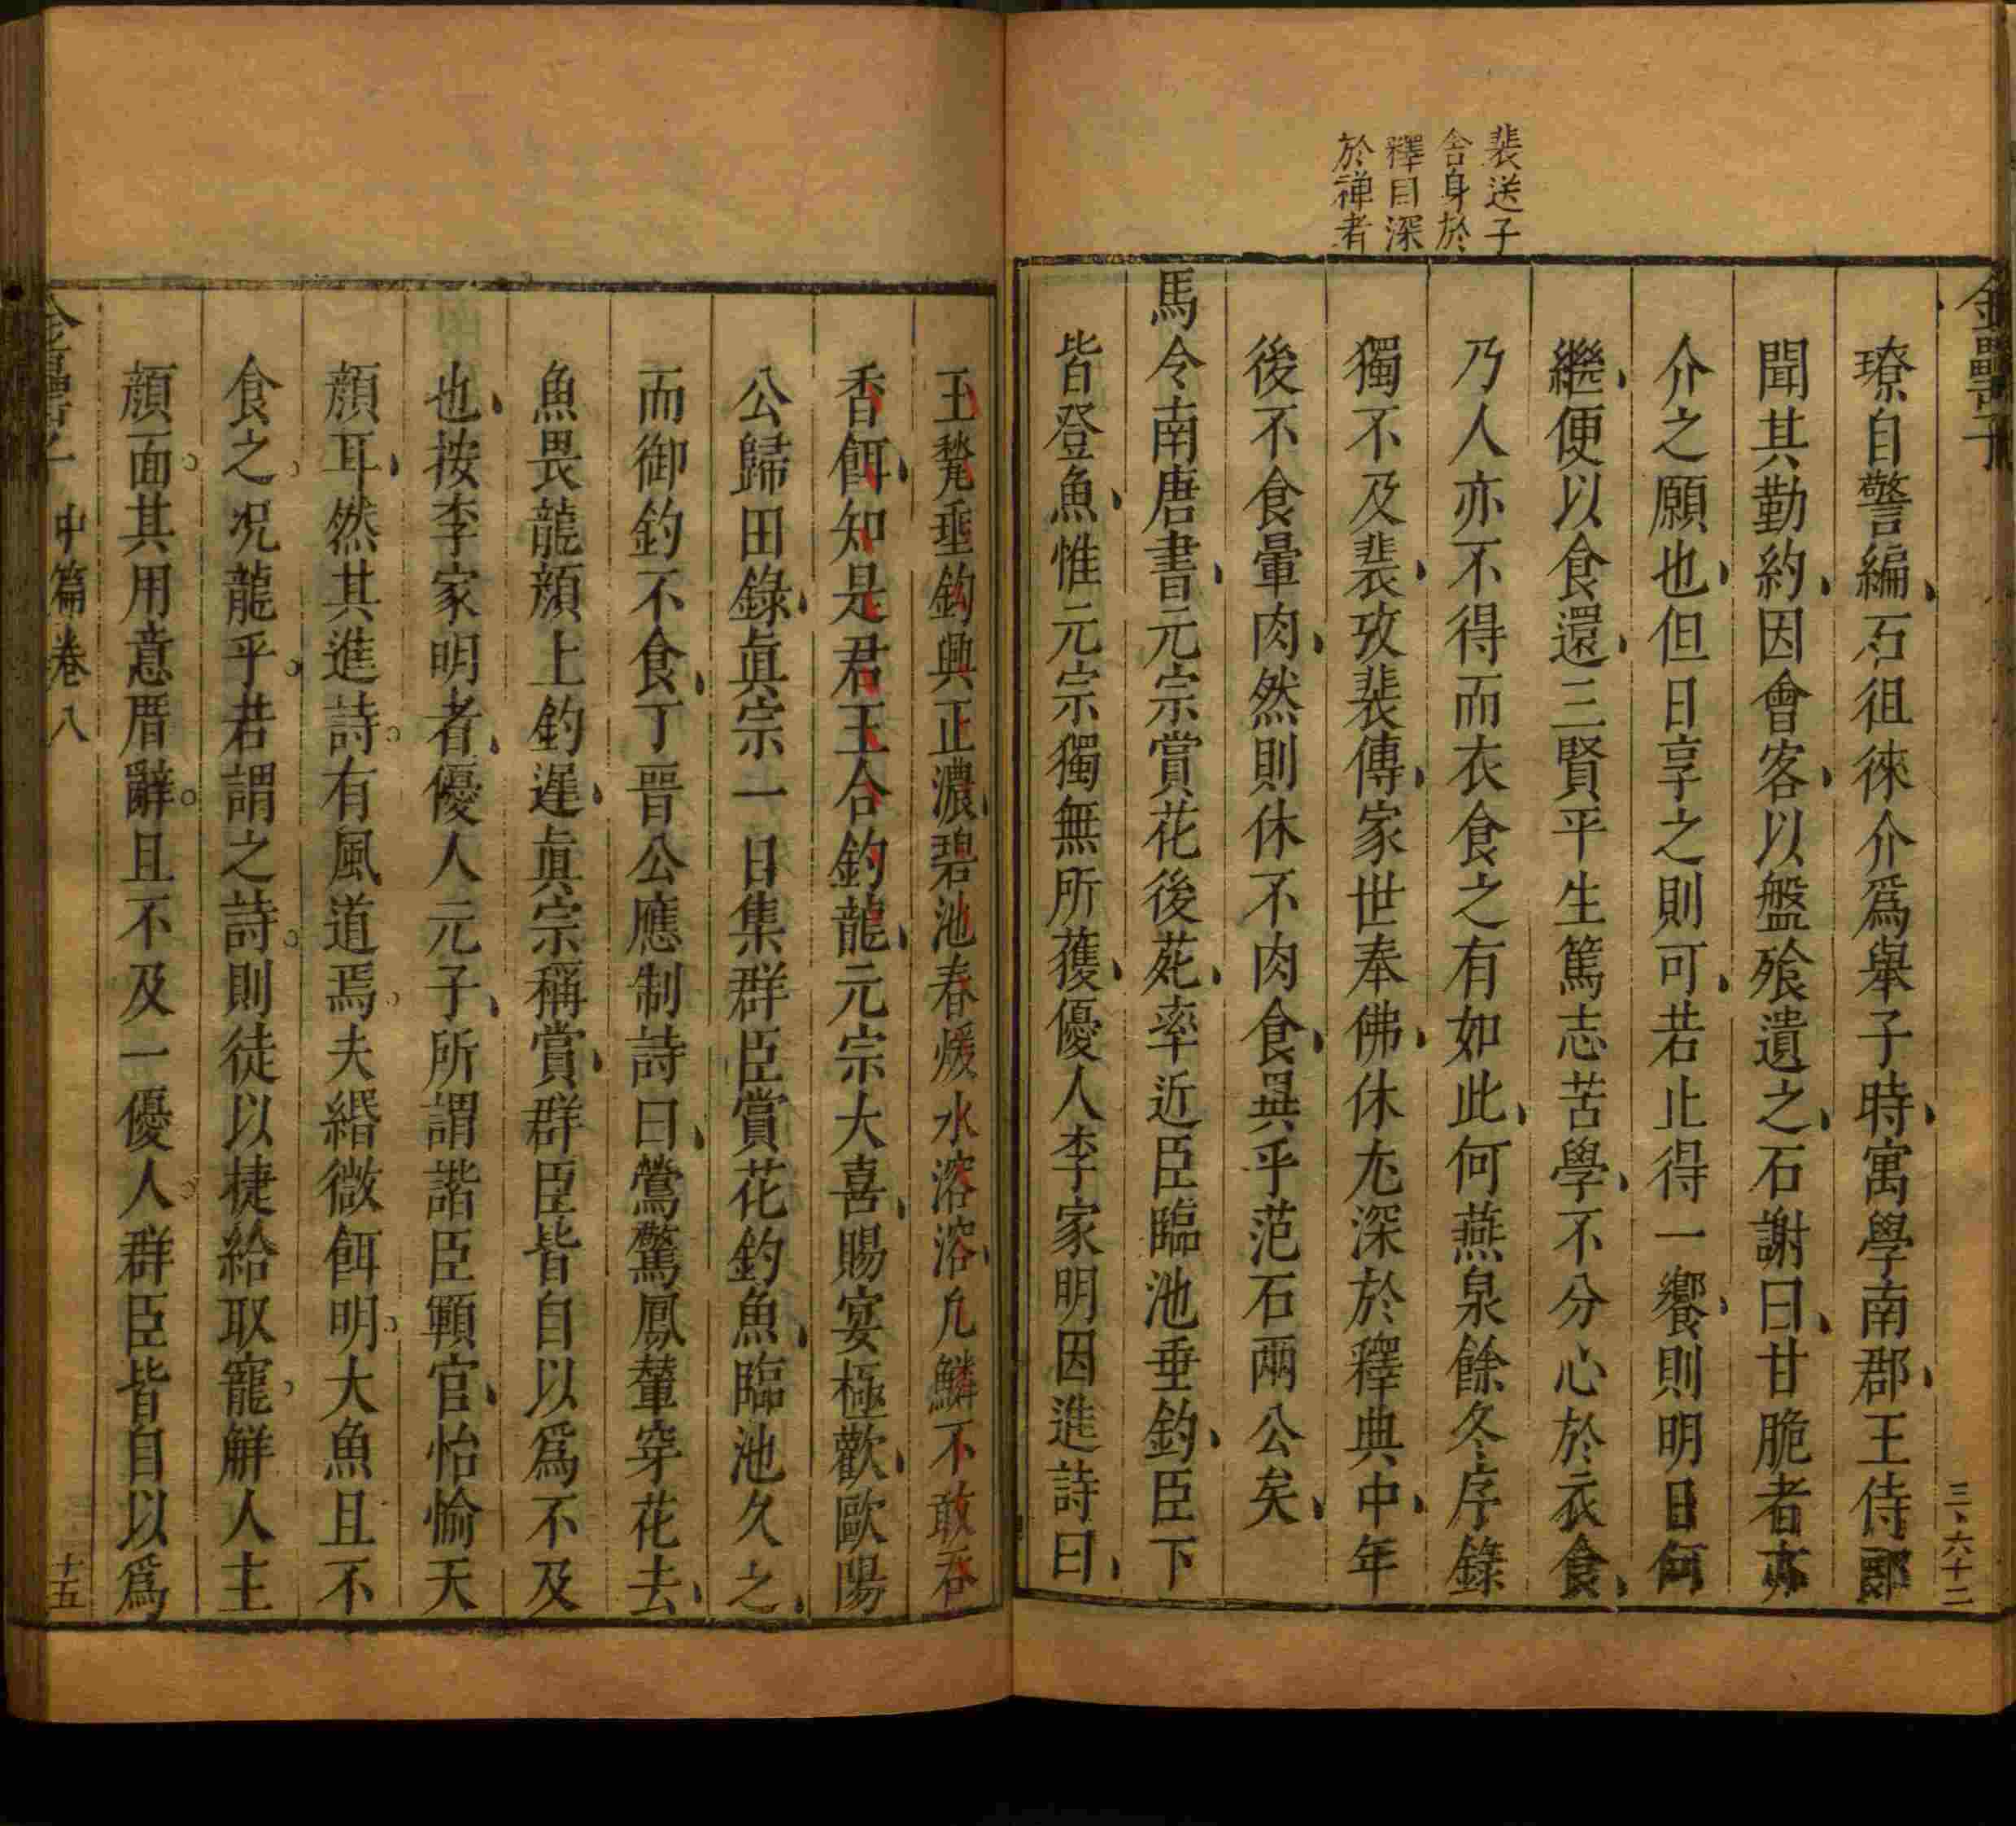 裴送子
舍身於
釋曰深
於禅者
金罍子
三、六十二
璙自警編石徂徠介爲舉子時寓學南郡王侍郎
聞其勤約因會客以盤飱遺之石謝曰甘脆者亦
介之願也但日享之則可若止得一饗則明日何
繼便以食還三賢平生篤志苦學不分心於衣食
乃人亦不得而衣食之有如此何燕泉餘冬序錄
獨不及裴攷裴傳家世奉佛休尢深於釋典中年
後不食暈肉然則休不肉食異乎范石兩公矣
馬令南唐書元宗賞花後苑率近臣臨池垂釣臣下
皆登魚惟元宗獨無所獲優人李家明因進詩曰
玉甃垂鈎興正濃碧池春煖水溶溶凢鱗不敢吞
香餌知是君王合釣龍元宗大喜賜宴極歡歐陽
公歸田錄眞宗一日集群臣賞花釣魚臨池久之
而御釣不食丁晉公應制詩曰鶯驚鳳輦穿花去
魚畏龍顔上釣遲眞宗稱賞群臣皆自以爲不及
也按李家明者優人元子所謂諧臣顐官怡愉天
顔耳然其進詩有風道焉夫緡微餌明大魚且不
食之况龍乎若謂之詩則徒以捷給取寵觧人主
顔面其用意厝辭且不及一優人群臣皆自以爲
金罍子 中篇卷八 十五